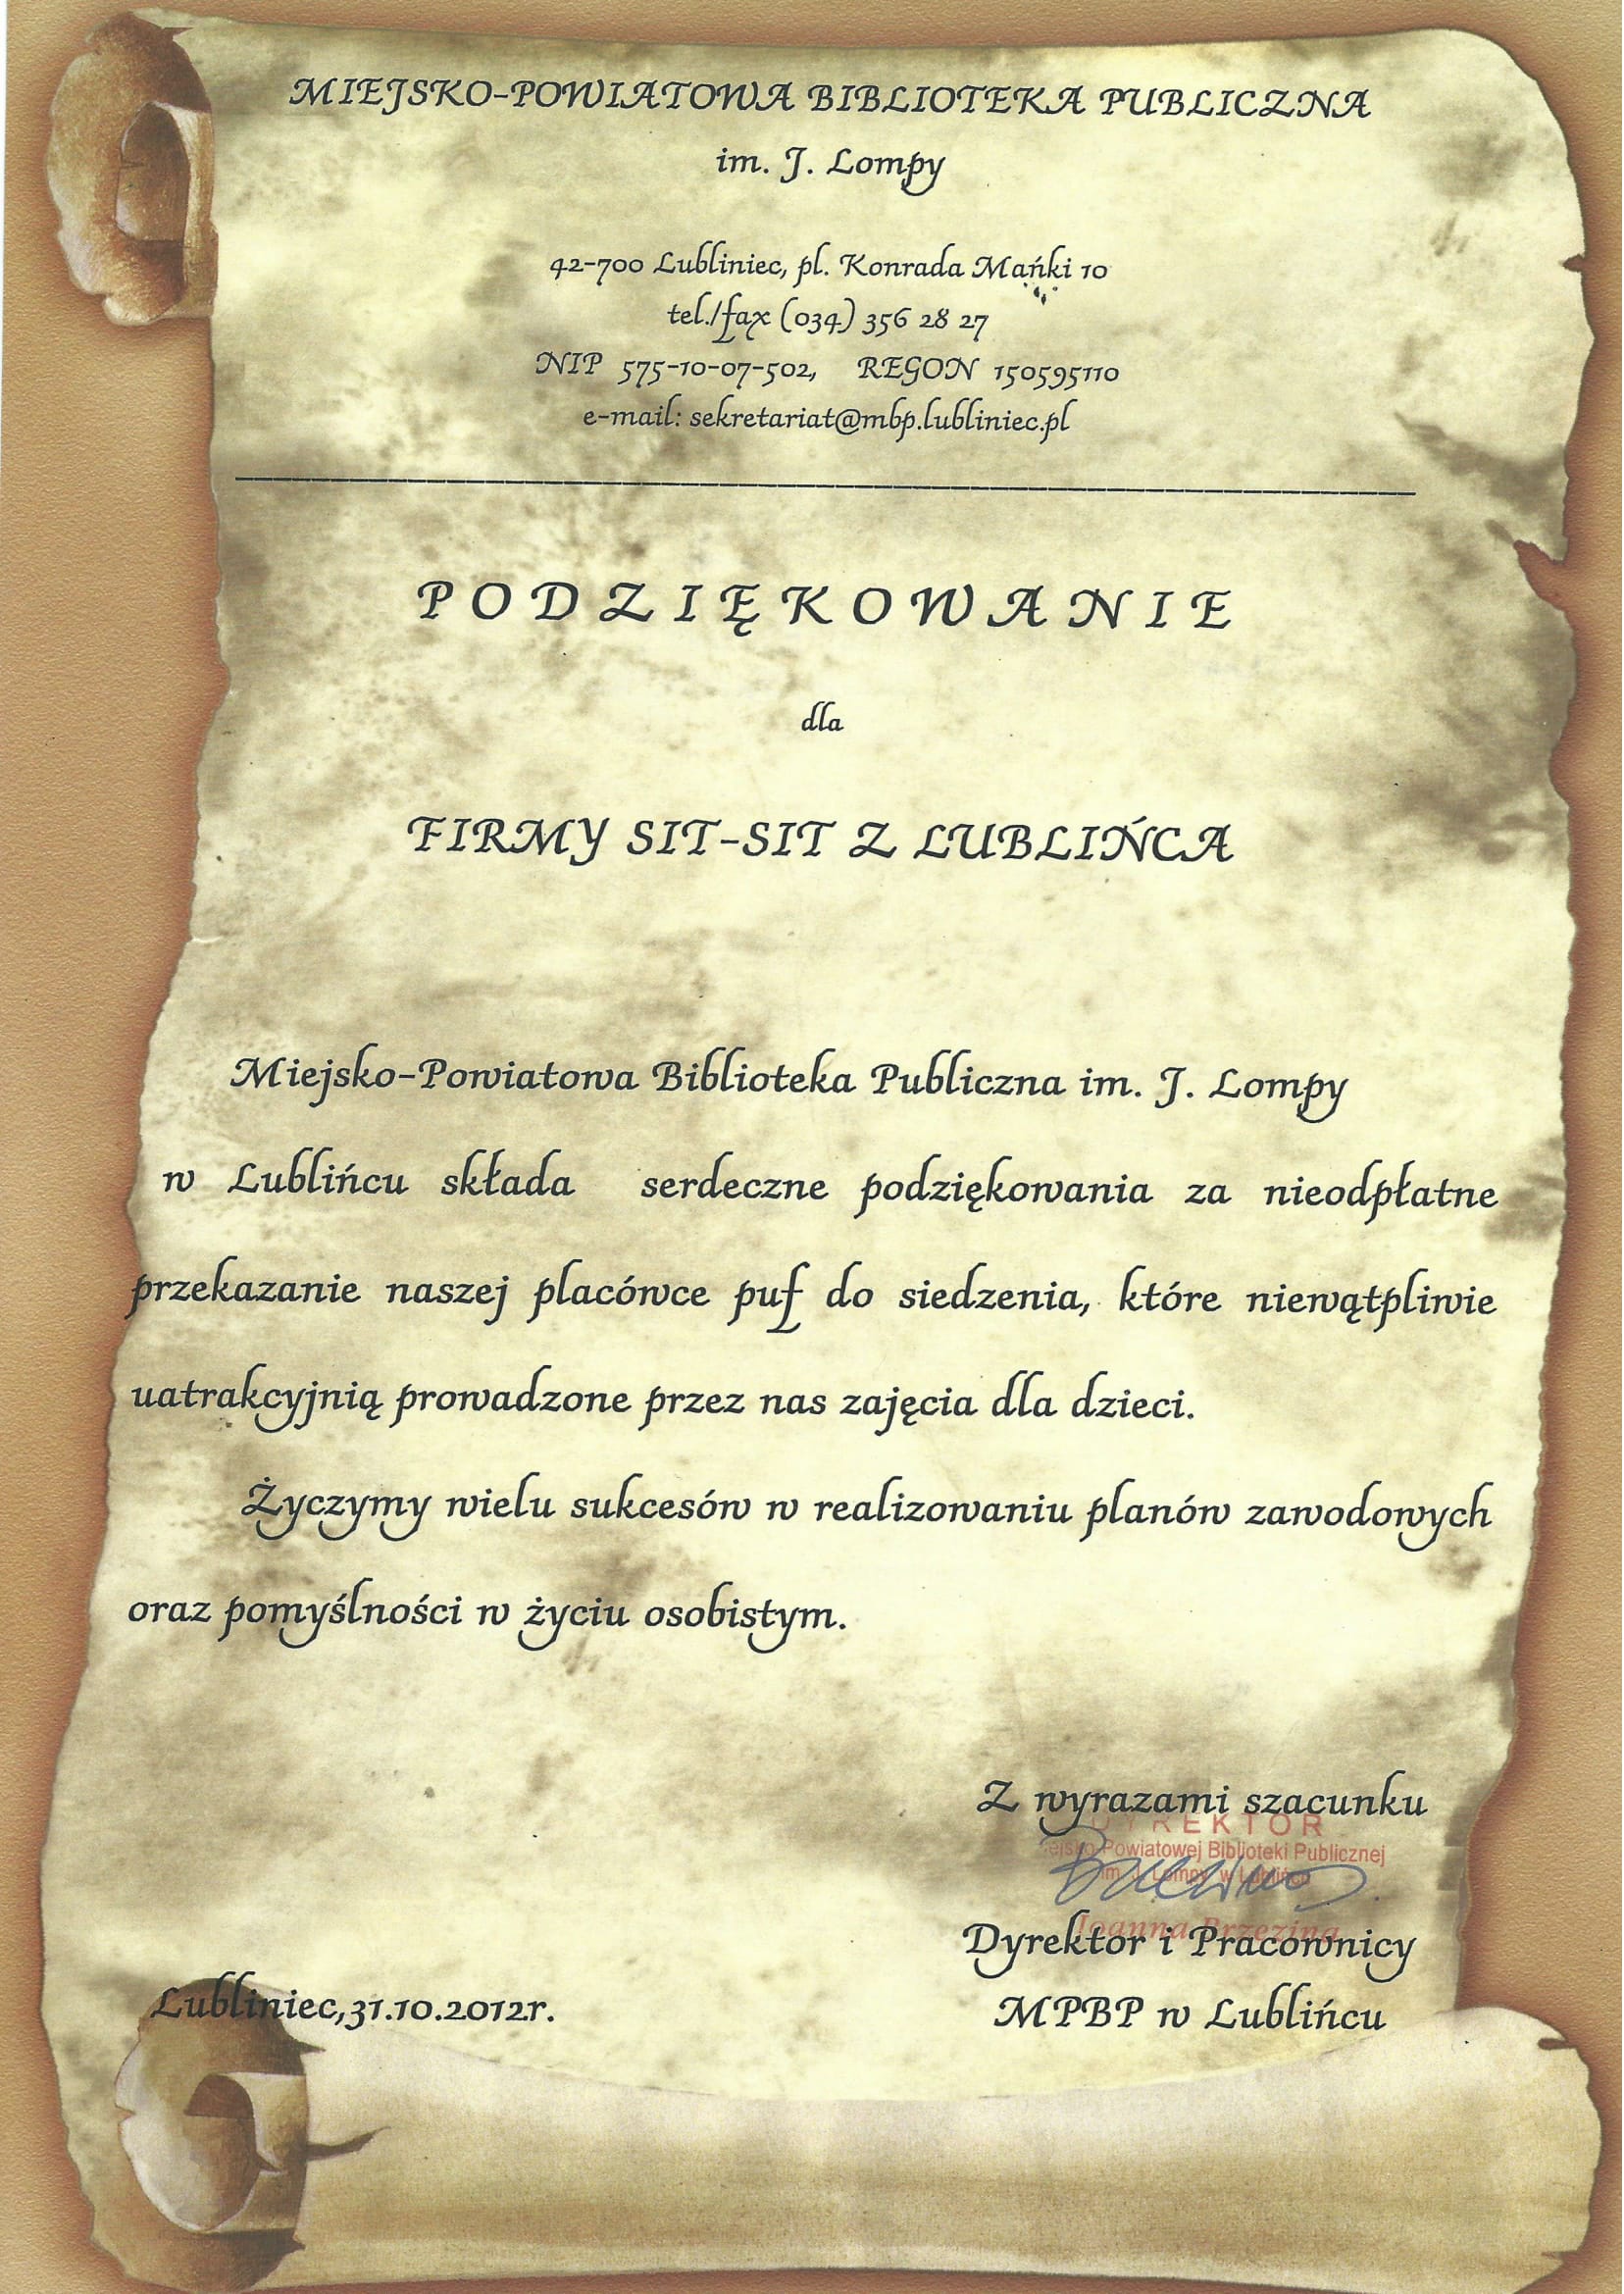 MIEJSKO-POWIATOWA BIBLIOTEKA PUBLICZNA
im. J. Lompy
42-700 Lubliniec, pl. Konrada Mańki 10
tel./fax (034) 356 28 27
NIP 575-10-07-502, REGON 150595110
e-mail: sekretariat@mbp.lubliniec.pl
PODZIĘKOWANIE
dla
FIRMY SIT-SIT Z LUBLIŃCA
Miejsko-Powiatowa Biblioteka Publiczna im. J. Lompy
w Lublińcu składa serdeczne podziękowania za nieodpłatne
przekazanie naszej placówce puf do siedzenia, które niewątpliwie
uatrakcyjnią prowadzone przez nas zajęcia dla dzieci.
Życzymy wielu sukcesów w realizowaniu planów zawodowych
oraz pomyślności w życiu osobistym.
Z wyrazami szacunku
DYREKTOR
Powiatowej Biblioteki Publicznej
im. J. Lompy w
Joanna Brzezina
Dyrektor i Pracownicy
MPBP w Lublińcu
Lubliniec,31.10.2012r.